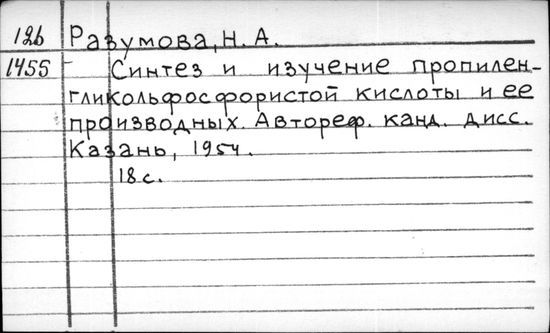 12б Разумова, Н. А.
1455 Синтез и изучение пропилен-
гликольфосфористой кислоты и ее
производных. Автореф. канд. дисс.
Казань, 1954.
18с.